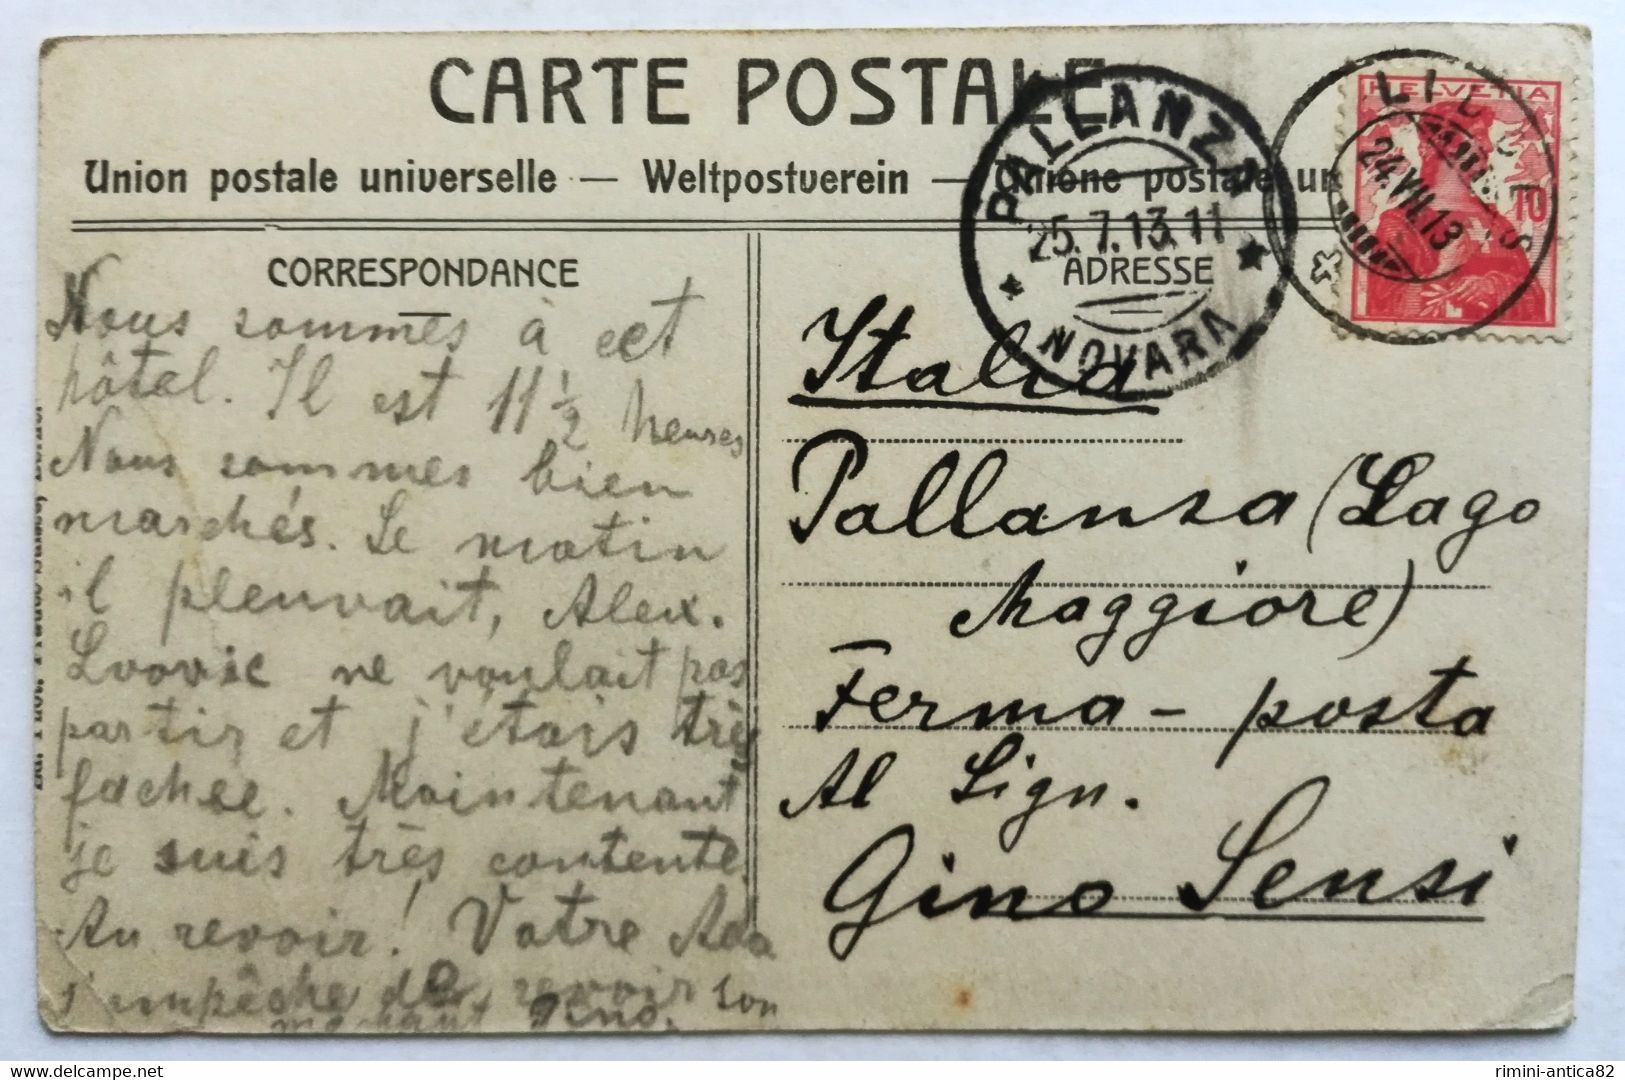 CARTE POSTALE
Union postale universelle — Weltpostverein — Unione postale un
CORRESPONDANCE
ADRESSE
Nous sommes à cet
hôtel. Il est 11 ½ heures
Nous sommes bien
marchés. Le matin
il pleuvait, Alex.
Lvovic ne voulait pas
partir et j'étais très
fachée. Maintenant
je suis très contente.
Au revoir! Votre Ada
empêche de revoir son
Gino.
Italia
Pallanza (Lago
Maggiore)
Ferma-posta
Al Sign.
Gino Sensi
PALLANZA
25.7.13.11
NOVARA
HELVETIA
10
LIDDES
24.VII.13
rimini-antica82